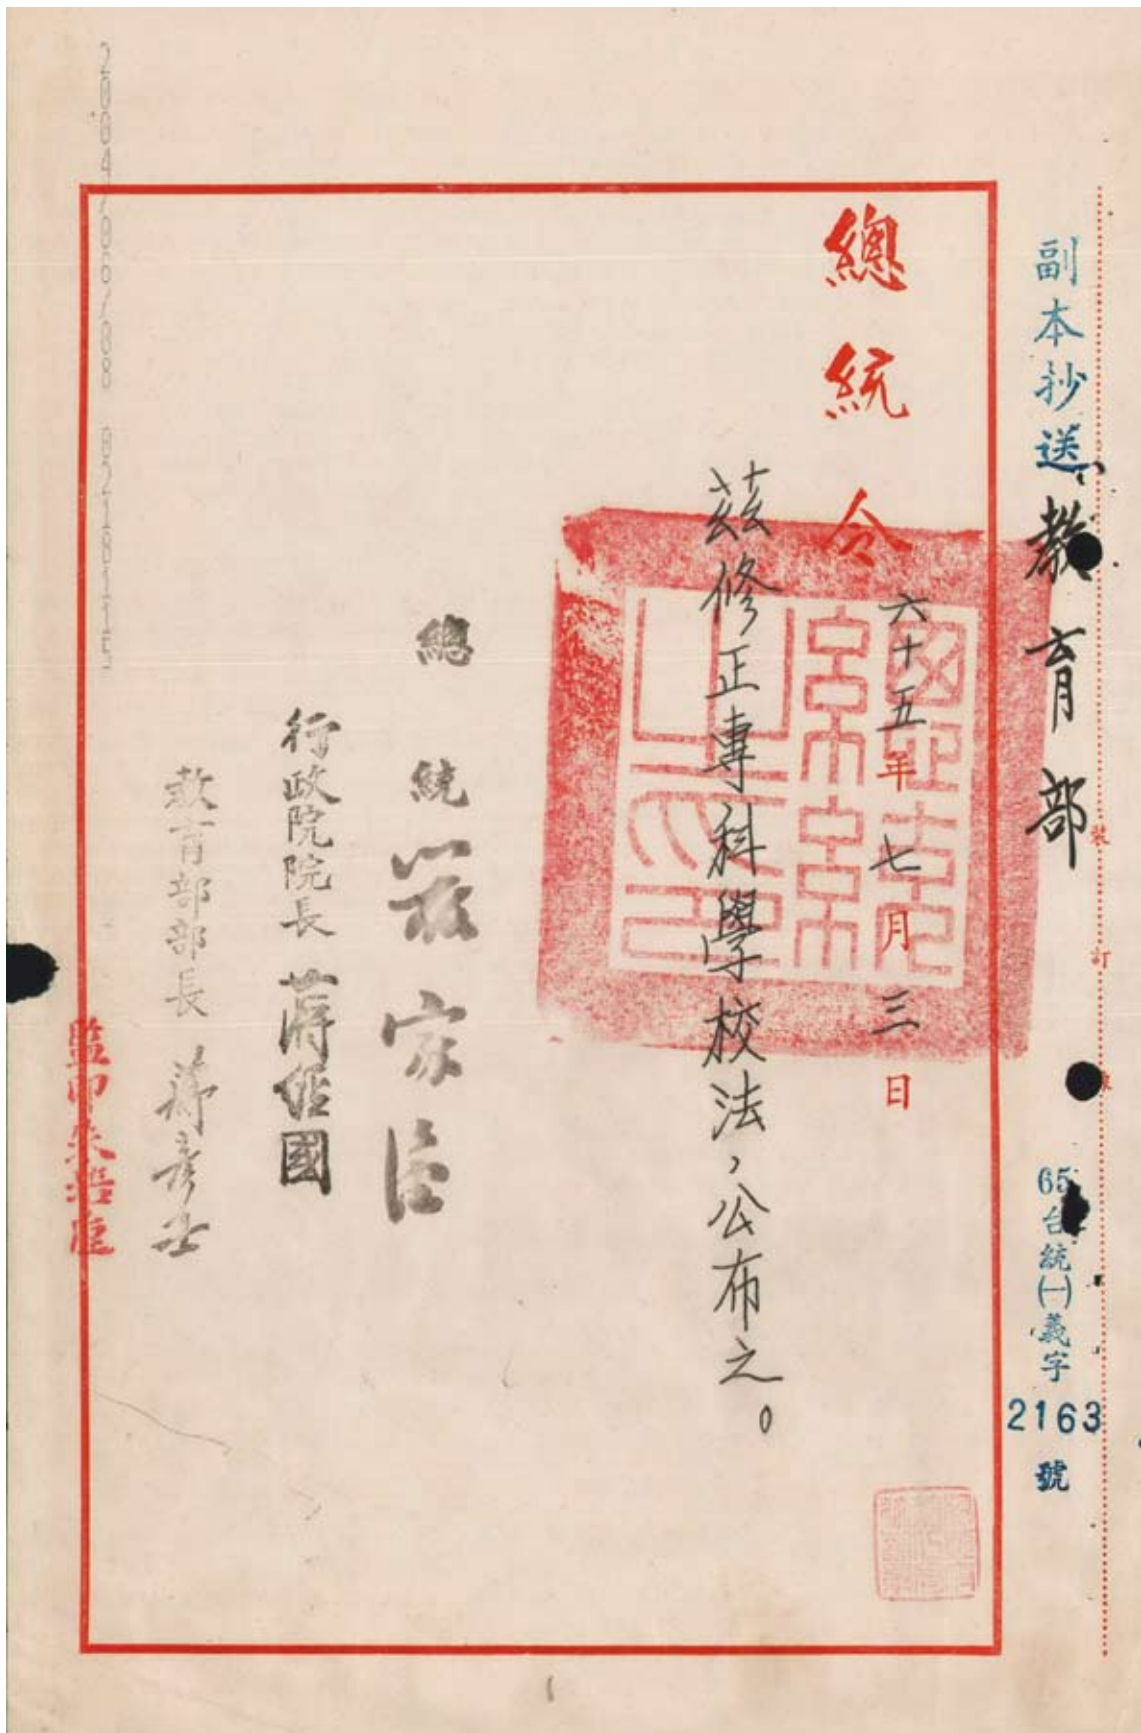 副本抄送教育部
65台統㈠義字2163號
裝訂線
總統令
六十五年七月三日
茲修正專科學校法,公布之。
總統嚴家淦
行政院院長蔣經國
教育部部長蔣彥士
監印朱培垣
2004/06/08 021811
1